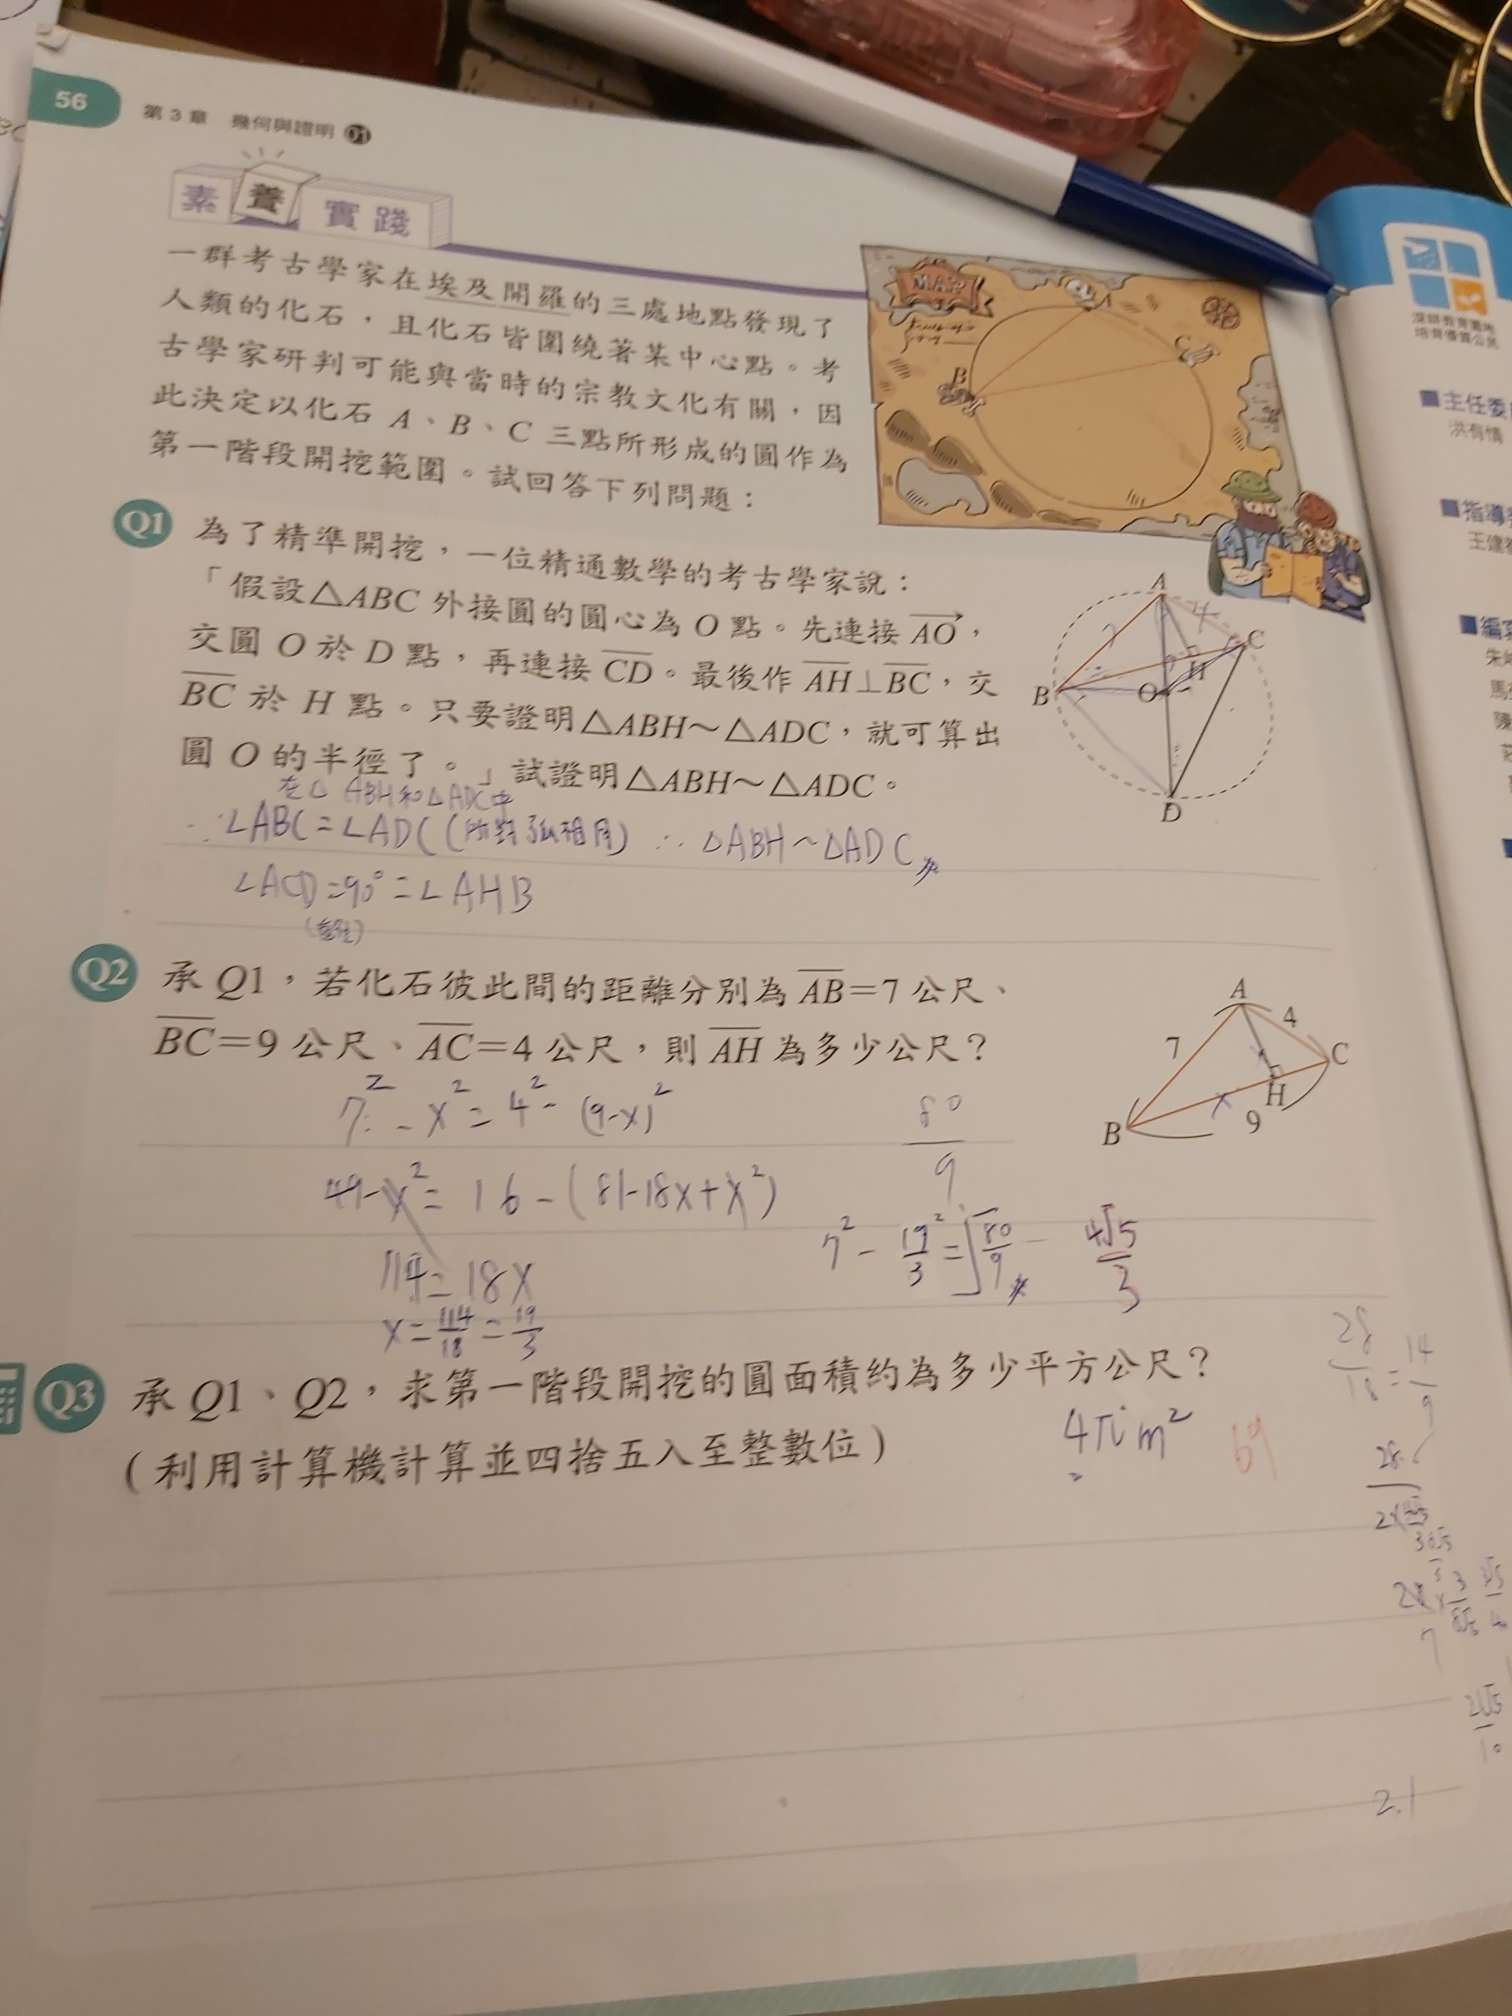 56
第3章 幾何與證明 Q1
素養實踐
一群考古學家在埃及開羅的三處地點發現了
人類的化石，且化石皆圍繞著某中心點。考
古學家研判可能與當時的宗教文化有關，因
此決定以化石 A、B、C 三點所形成的圓作為
第一階段開挖範圍。試回答下列問題：
MAP
A
C
B
Q1 為了精準開挖，一位精通數學的考古學家說：
「假設△ABC 外接圓的圓心為 O 點。先連接 AO，
交圓 O 於 D 點，再連接 CD。最後作 AH⊥BC，交
BC 於 H 點。只要證明△ABH～△ADC，就可算出
圓 O 的半徑了。」試證明△ABH～△ADC。
A
4
C
H
B
O
D
在△ABH和△ADC中
∵∠ABC=∠ADC(所對弧相同) ∴△ABH~△ADC
∠ACD=90°=∠AHB
Q2 承 Q1，若化石彼此間的距離分別為 AB=7 公尺、
BC=9 公尺、AC=4 公尺，則 AH 為多少公尺？
A
4
7
C
H
x
9
B
7²-x²=4²-(9-x)²
80
9
49-x²=16-(81-18x+x²)
7²-19²/3=√80/9
4√5/3
114=18x
x=114/18=19/3
Q3 承 Q1、Q2，求第一階段開挖的圓面積約為多少平方公尺？
（利用計算機計算並四捨五入至整數位）
4π m²
69
28/18=14/9
21√5
10
2.1
深耕教育園地
培育優質公民
■主任委
洪有情
■指導
■編